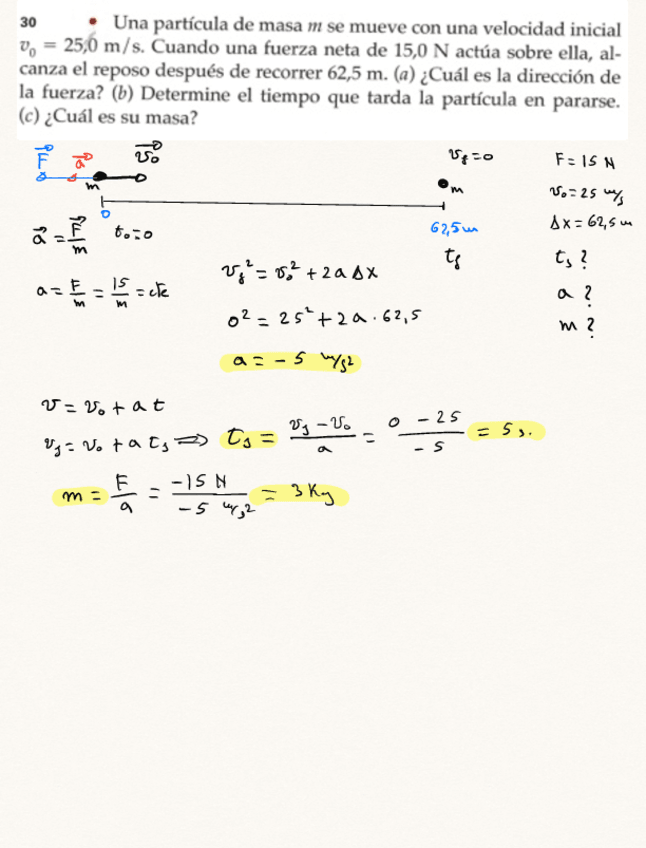 30 • Una partícula de masa m se mueve con una velocidad inicial
v₀ = 25,0 m/s. Cuando una fuerza neta de 15,0 N actúa sobre ella, al-
canza el reposo después de recorrer 62,5 m. (a) ¿Cuál es la dirección de
la fuerza? (b) Determine el tiempo que tarda la partícula en pararse.
(c) ¿Cuál es su masa?
F⃗ a⃗ v⃗₀ m
v_f = 0
m
0 62,5 m
t₀ = 0 t_f
F = 15 N
v₀ = 25 m/s
Δx = 62,5 m
t_f ?
a ?
m ?
a⃗ = F⃗/m
a = F/m = 15/m = cte
v_f² = v₀² + 2a Δx
0² = 25² + 2a · 62,5
a = -5 m/s²
v = v₀ + a t
v_f = v₀ + a t_f ⇒ t_f = (v_f - v₀)/a = (0 - 25)/-5 = 5 s.
m = F/a = -15 N/-5 m/s² = 3 Kg